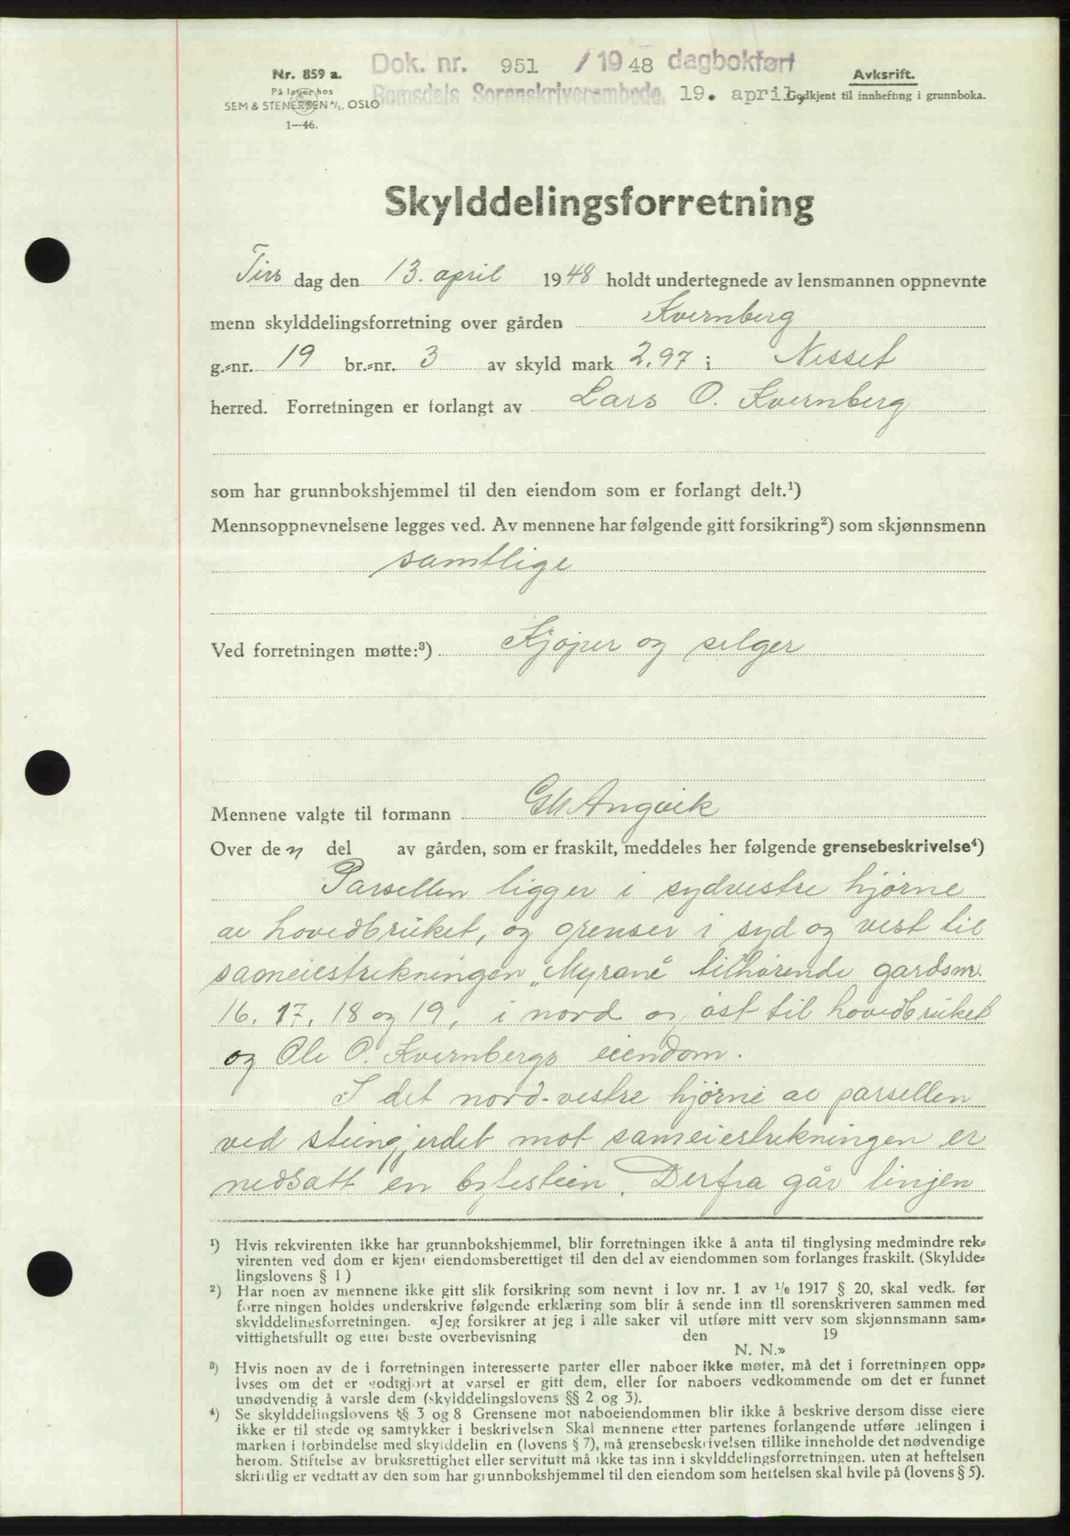 Dok. nr. 951 / 1948 dagbokført
Nr. 859 a.
Avskrift.
På lager hos
Romsdals Sorenskriverembede, 19. april
Godkjent til innhefting i grunnboka.
SEM & STENERSEN A/S, OSLO
1—46.
Skylddelingsforretning
Tirs dag den 13. april 1948 holdt undertegnede av lensmannen oppnevnte
menn skylddelingsforretning over gården Kvernberg
g.-nr. 19 br.-nr. 3 av skyld mark 2,97 i Nesset
herred. Forretningen er forlangt av Lars O. Kvernberg
som har grunnbokshjemmel til den eiendom som er forlangt delt.¹)
Mennsoppnevnelsene legges ved. Av mennene har følgende gitt forsikring²) som skjønnsmenn
samtlige
Ved forretningen møtte:³) Kjøper og selger
Mennene valgte til formann Angvik
Over den del av gården, som er fraskilt, meddeles her følgende grensebeskrivelse⁴)
Parsellen ligger i sydvestre hjørne
av hovedbruket, og grenser i syd og vest til
sameiestrekningen „Myrane" tilhørende gardsnr.
16, 17, 18 og 19, i nord og øst til hovedbruket
og Ole O. Kvernbergs eiendom.
I det nord-vestre hjørne av parsellen
ved steingjerdet mot sameiestrekningen er
nedsatt en bytestein. Derfra går linjen
¹) Hvis rekvirenten ikke har grunnbokshjemmel, blir forretningen ikke å anta til tinglysing medmindre rek-
virenten ved dom er kjent eiendomsberettiget til den del av eiendommen som forlanges fraskilt. (Skyldde-
lingslovens § 1)
²) Har noen av mennene ikke gitt slik forsikring som nevnt i lov nr. 1 av 1/6 1917 § 20, skal vedk. før
forretningen holdes underskrive følgende erklæring som blir å sende inn til sorenskriveren sammen med
skylddelingsforretningen. «Jeg forsikrer at jeg i alle saker vil utføre mitt verv som skjønnsmann sam-
vittighetsfullt og etter beste overbevisning den 19
N. N.»
³) Hvis noen av de i forretningen interesserte parter eller naboer ikke møter, må det i forretningen opp-
lyses om det er godtgjort at varsel er gitt dem, eller for naboers vedkommende om det er funnet
unødvendig å varsle dem (skylddelingslovens §§ 2 og 3).
⁴) Se skylddelingslovens §§ 3 og 8 Grensene mot naboeiendommen blir ikke å beskrive dersom disse eiere
ikke er til stede og samtykker i beskrivelsen Skal mennene etter partenes forlangende utføre delingen i
marken i forbindelse med skylddelingen (lovens § 7), må grensebeskrivelsen tillike inneholde det nødvendige
herom. Stiftelse av bruksrettighet eller servitutt må ikke tas inn i skylddelingsforretningen, uten at heftelsen
skriftlig er vedtatt av den som har grunnbokshjemmel til den eiendom som heftelsen skal hvile på (lovens § 5).